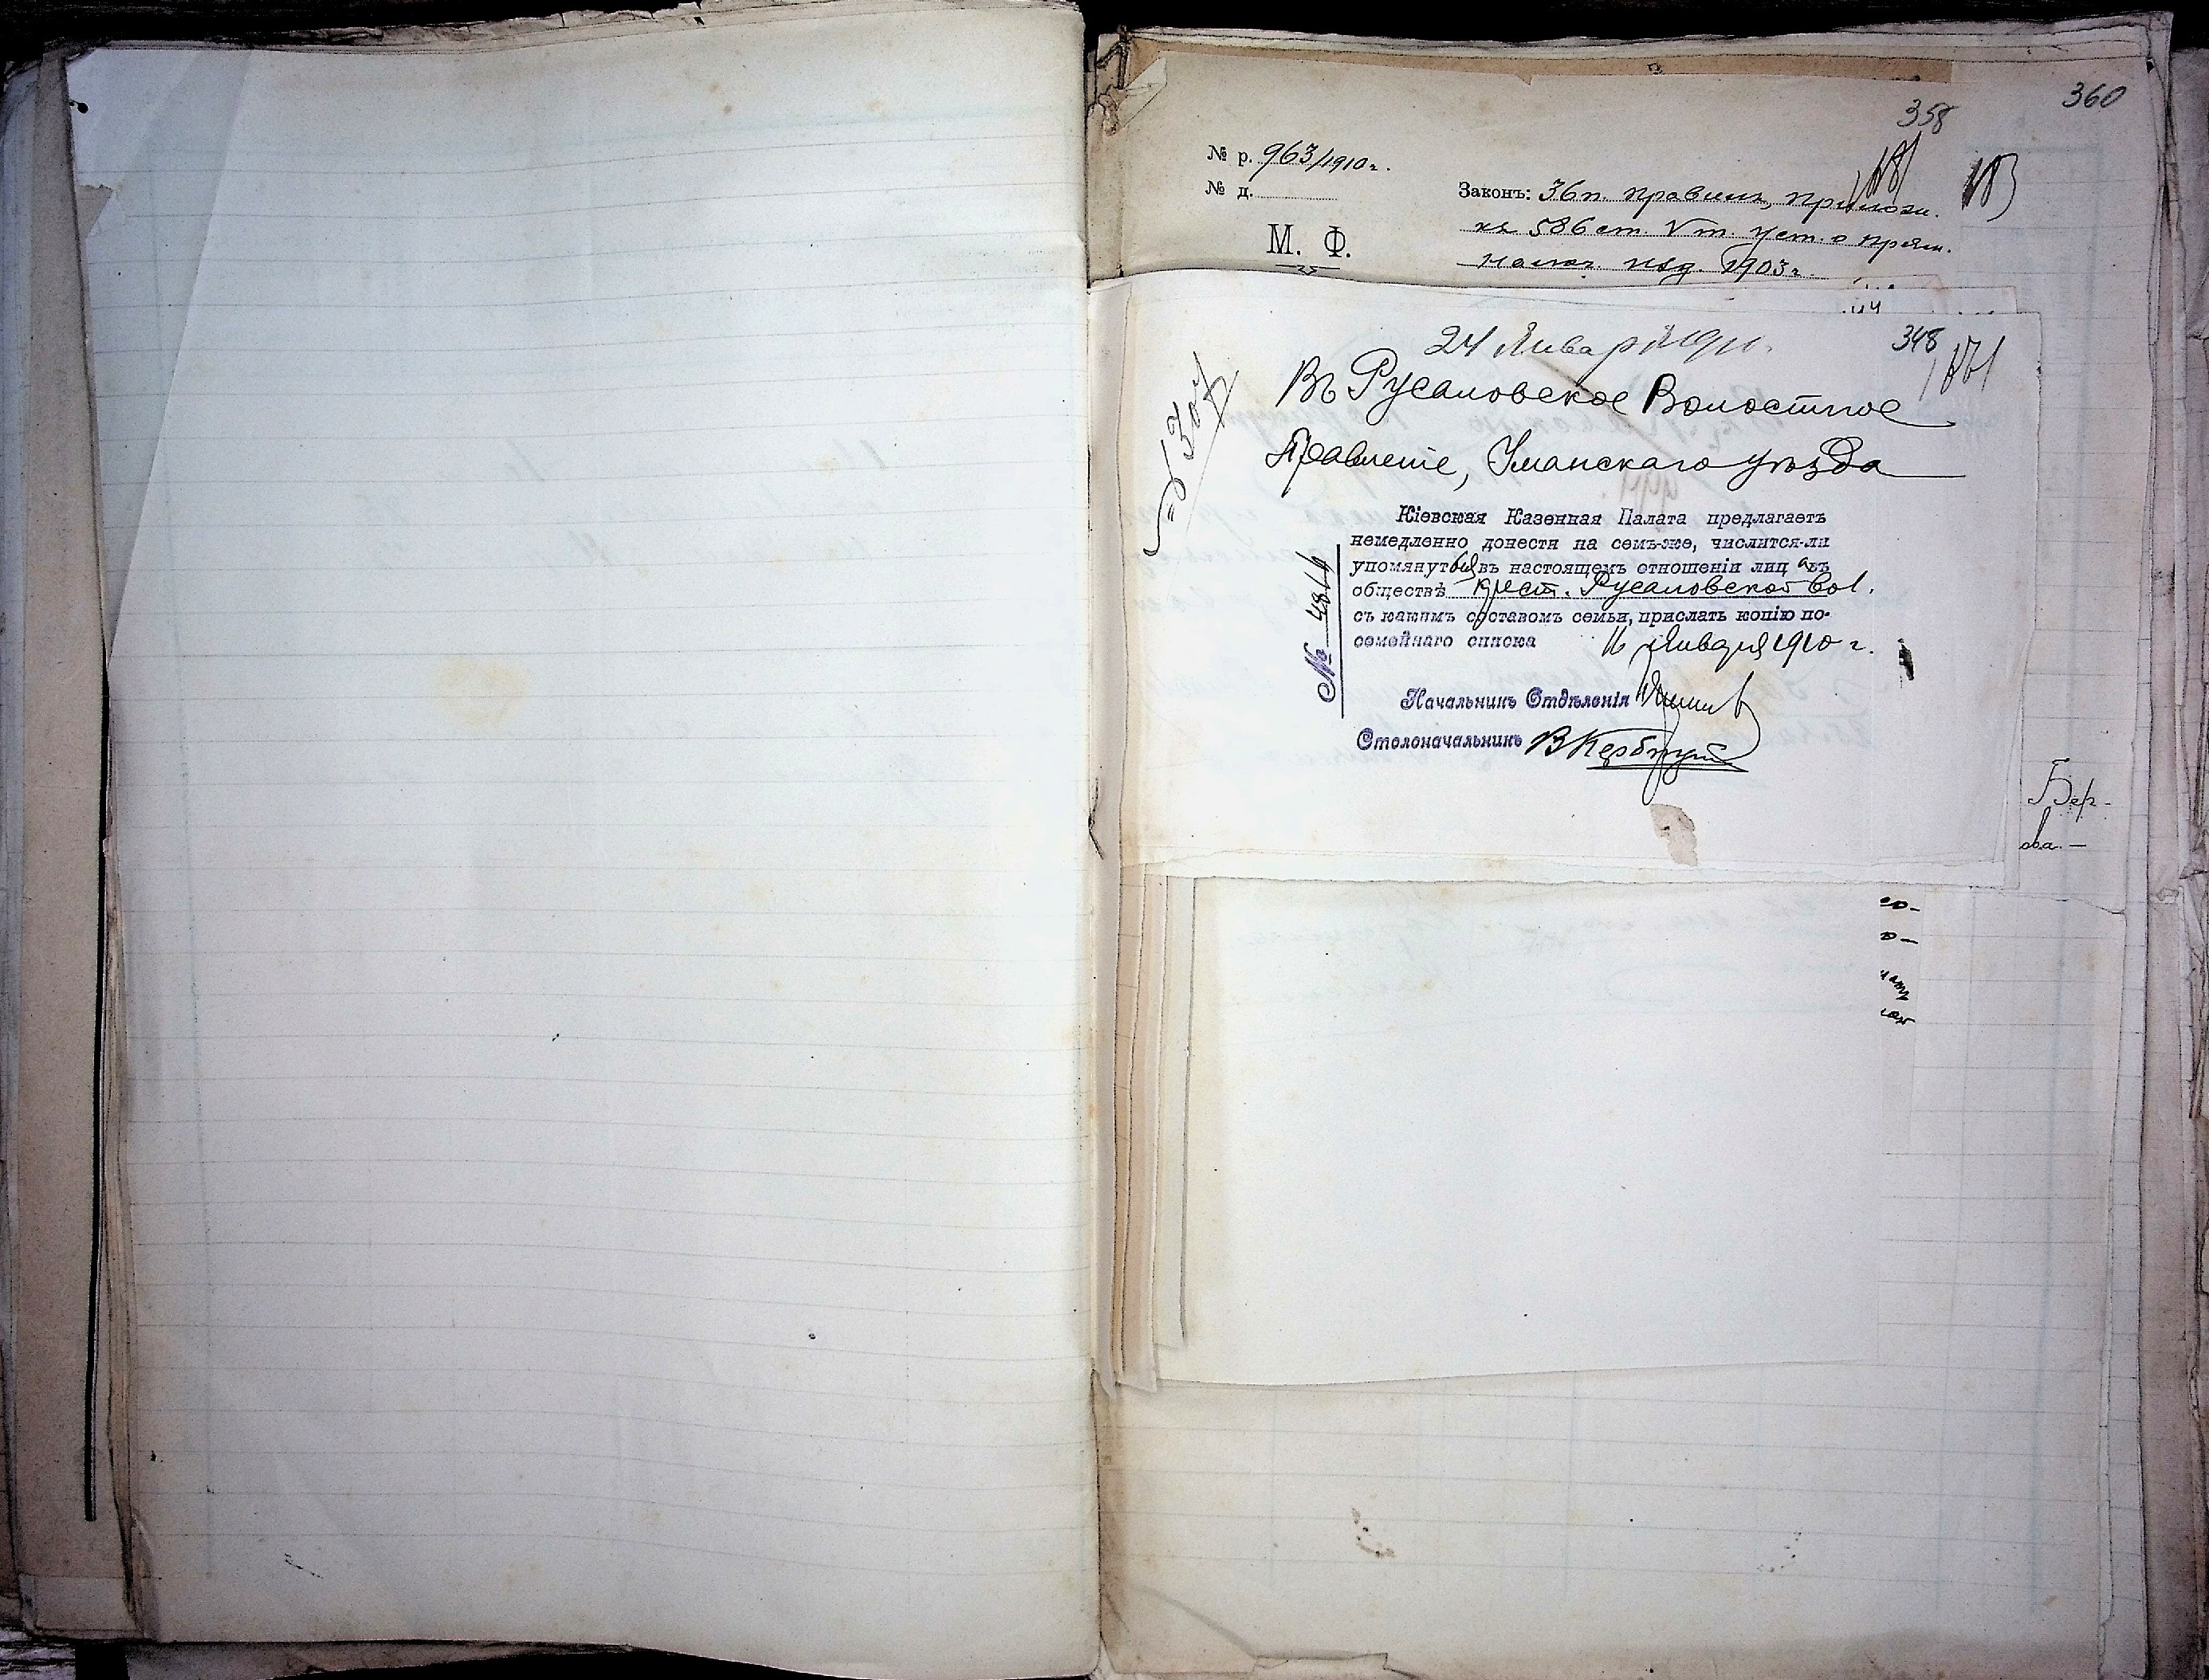 360
358
№ р. 963/1910 г.
№ д.
183
Законъ: 36 п. правилъ, прилож.
къ 586 ст. V т. уст. о прям.
налог. изд. 1903 г.
М. Ф.
24 Января 1910
348
Въ Русаловское Волостное
Правленіе, Уманскаго уѣзда
Кіевская Казенная Палата предлагаетъ
немедленно донести на семъ-же, числится-ли
упомянутый въ настоящемъ отношеніи лиц въ
обществѣ крест. Русаловской вол.
съ какимъ составомъ семьи, прислать копію по-
семейнаго списка 16 Января 1910 г.
№ 4844
Начальникъ Отдѣленія
Столоначальникъ
Бер-
ова. —